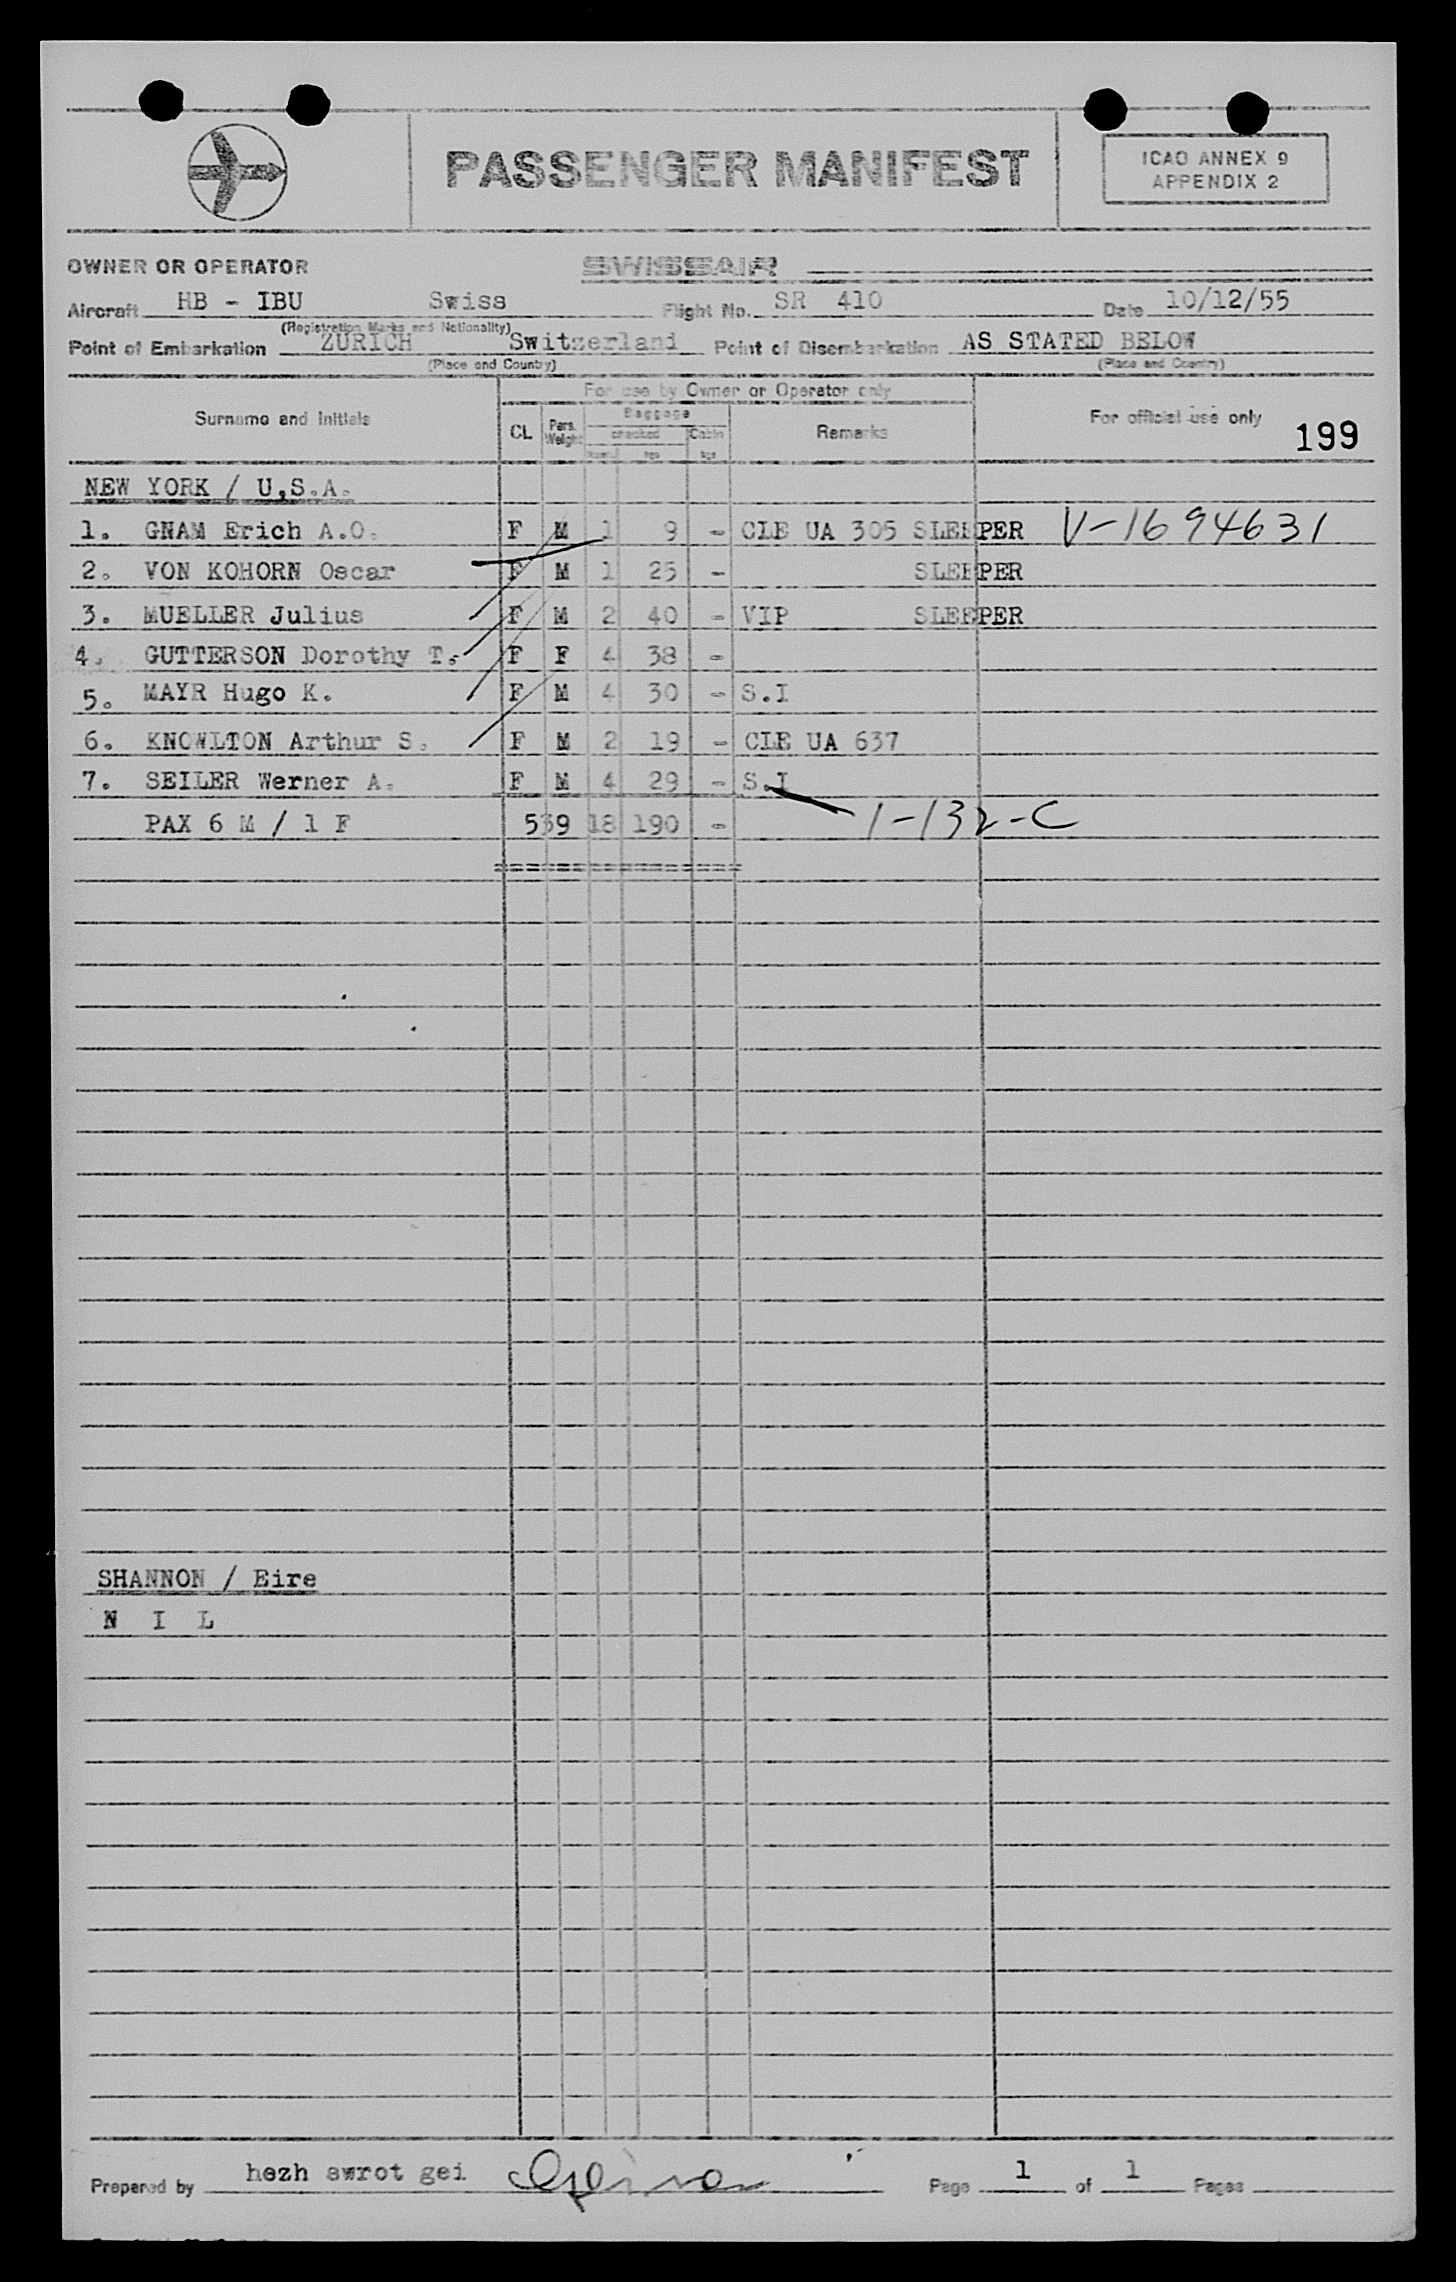 PASSENGER MANIFEST
ICAO ANNEX 9
APPENDIX 2
OWNER OR OPERATOR SWISSAIR
Aircraft HB - IBU Swiss Flight No. SR 410 Date 10/12/55
(Registration Marks and Nationality)
Point of Embarkation ZURICH Switzerland Point of Disembarkation AS STATED BELOW
(Place and Country) (Place and Country)
For use by Owner or Operator only
Surname and Initials CL Pers. Weight Baggage checked Cabin kgs Remarks For official use only 199
NEW YORK / U,S.A.
1. GNAM Erich A.O. F M 1 9 - CLE UA 305 SLEEPER V-1694631
2. VON KOHORN Oscar F M 1 25 - SLEEPER
3. MUELLER Julius F M 2 40 - VIP SLEEPER
4. GUTTERSON Dorothy T. F F 4 38 -
5. MAYR Hugo K. F M 4 30 - S.I
6. KNOWLTON Arthur S. F M 2 19 - CLE UA 637
7. SEILER Werner A. F M 4 29 - S.I
PAX 6 M / 1 F 539 18 190 - 1-132-C
SHANNON / Eire
N I L
Prepared by hezh swrot gei Page 1 of 1 Pages